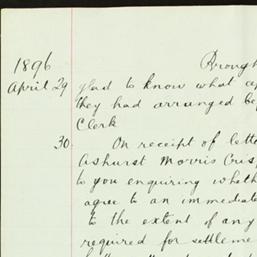 1896 Brough
April 29 glad to know what ap
they had arranged be
Clerk
30 On receipt of lette
Ashurst Morris Cris
to you enquiring wheth
agree to an immediat
to the extent of any
required for settleme